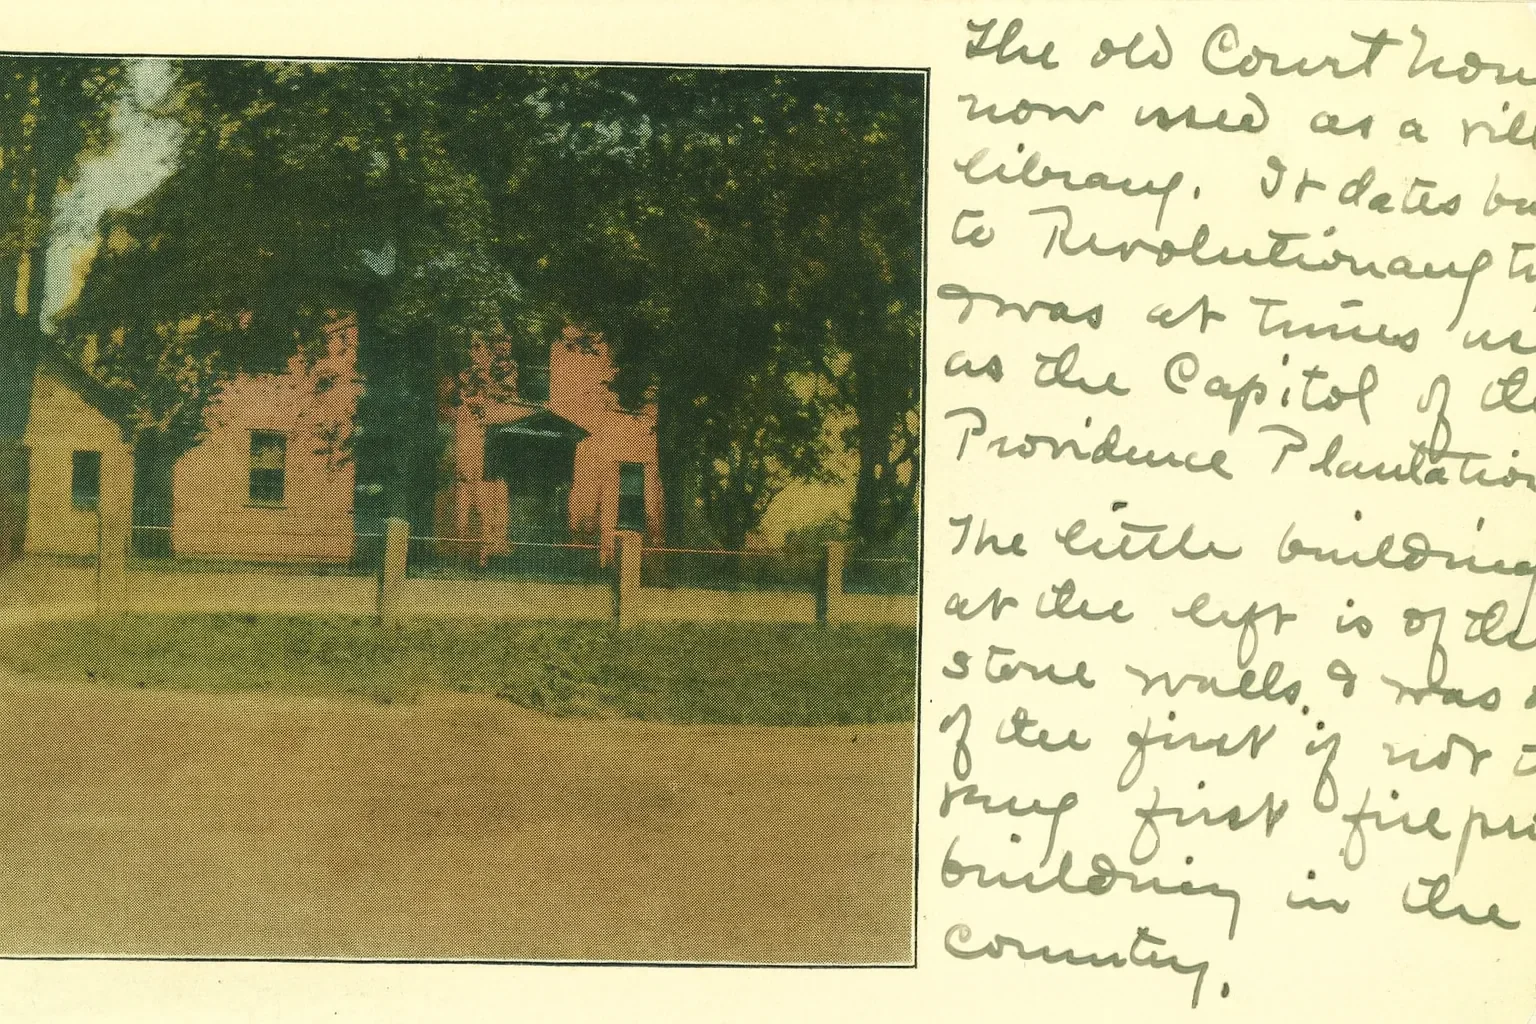 The old Court hou
now used as a vill
library. It dates ba
to Revolutionary ti
& was at times us
as the Capitol of th
Providence Plantation
The little building
at the left is of the
stone walls, & was o
of the first if not t
very first fire pro
building in the
country.